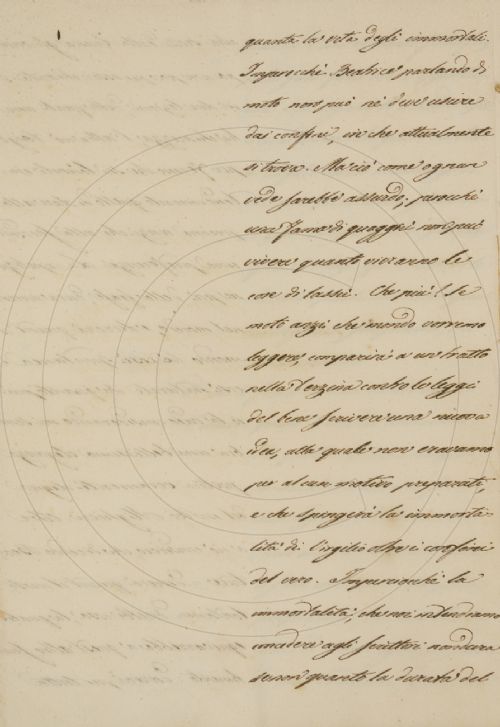 quanto la vita degli immortali.
Imperocchè Beatrice parlando di
moto non può nè deve uscire
dai confini, in che attualmente
si trova. Ma ciò come ognun
vede sarebbe assurdo, perocchè
una fama di quaggiù non può
vivere quanto vivranno le
cose di lassù. Che più! Se
moto anzi che mondo vorremo
leggere, comparirà a un tratto
nella terzina contro le leggi
del bene scrivere una nuova
idea, alla quale non eravamo
per alcun motivo preparati,
e che spingerà la immorta
lità di Virgilio oltre i confini
del vero. Imperciochè la
immortalità, che noi intendiamo
accadere agli scrittori non dura
senon quanto la durata del